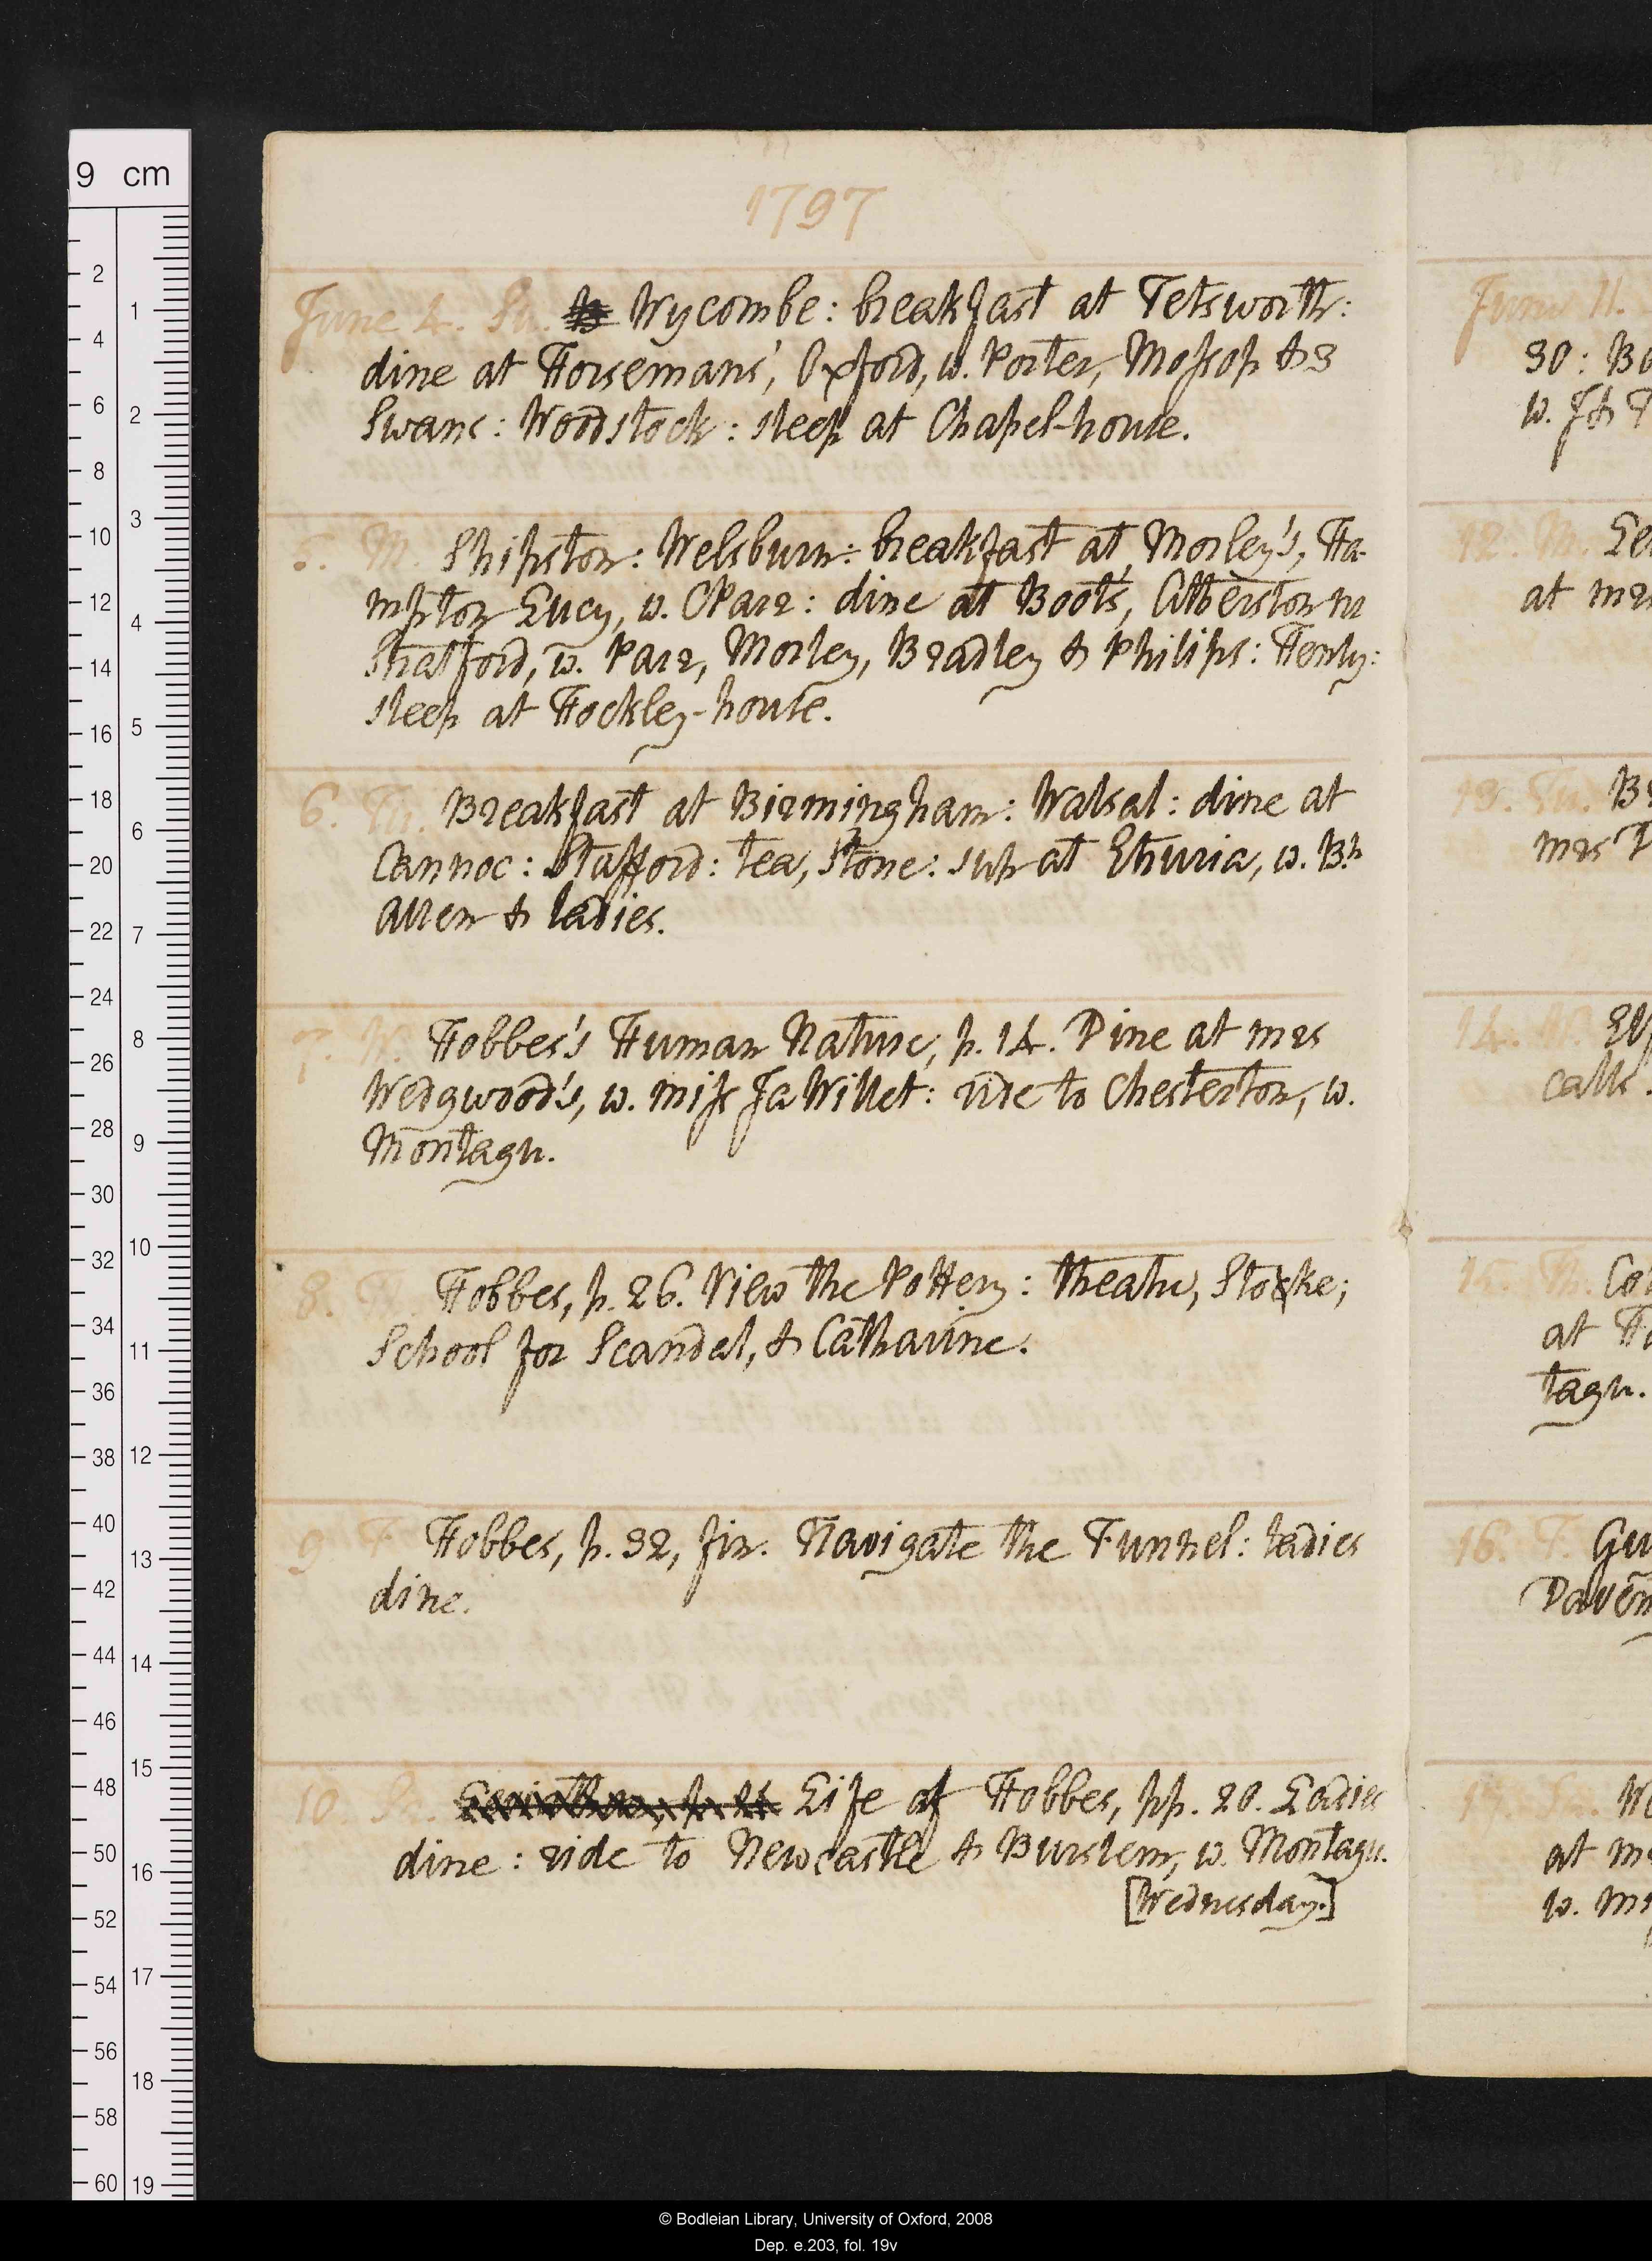 1797
June 4. Su. Wycombe: breakfast at Tetsworth:
dine at Horsemans', Oxford, w. Porter, Mossop & 3
Swans: Woodstock: sleep at Chapel-house.
5. M. Shipston: Welsburn: breakfast at Morley's, Ha-
mpton Lucy, w. CParr: dine at Boot's, Atherston nr
Stratford, w. Parr, Morley, Bradley & Philips: Henly:
sleep at Hockley-house.
6. Tu. Breakfast at Birmingham: Walsal: dine at
Cannoc: Stafford: tea, Stone: sup at Etruria, w. Bh
Allen & ladies.
7. W. Hobbes's Human Nature, p. 14. Dine at mrs
Wedgwood's, w. miss Ja Willet: ride to Chesterton, w.
Montagu.
8. Th. Hobbes, p. 26. View the Pottery: theatre, Stocke;
School for Scandal, & Catharine.
9 F. Hobbes, p. 32, fin. Navigate the Tunnel: ladies
dine.
10. Sa. Life of Hobbes, pp. 20. Ladies
dine: ride to Newcastle & Burslem, w. Montagu.
[Wednesday.]
June 11.
30: Bo
w. J& T
12. M. Le
at mrs
13. Tu. Br
mrs
14. W.
calls.
15. Th. Col
at
tagu.
16. F. Gu
Daven
17.
at
w.
9 cm
2
4
6
8
10
12
14
16
18
20
22
24
26
28
30
32
34
36
38
40
42
44
46
48
50
52
54
56
58
60
1
2
3
4
5
6
7
8
9
10
11
12
13
14
15
16
17
18
19
© Bodleian Library, University of Oxford, 2008
Dep. e.203, fol. 19v